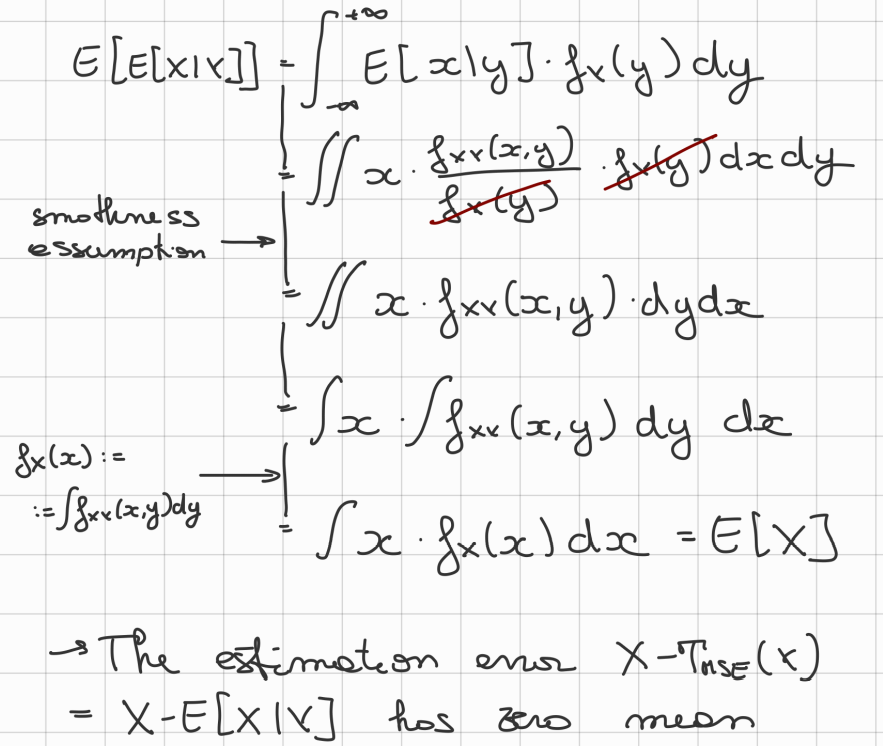 E[E[X|Y]] = ∫_{-∞}^{+∞} E[x|y] · f_Y(y) dy
= ∬ x · f_XY(x,y) / f_Y(y) · f_Y(y) dx dy
smothness
assumption →
= ∬ x · f_XY(x,y) · dy dx
= ∫ x · ∫ f_XY(x,y) dy dx
f_X(x) :=
:= ∫ f_XY(x,y) dy →
= ∫ x · f_X(x) dx = E[X]
→ The estimation error X - T_MSE(Y)
= X - E[X|Y] has zero mean